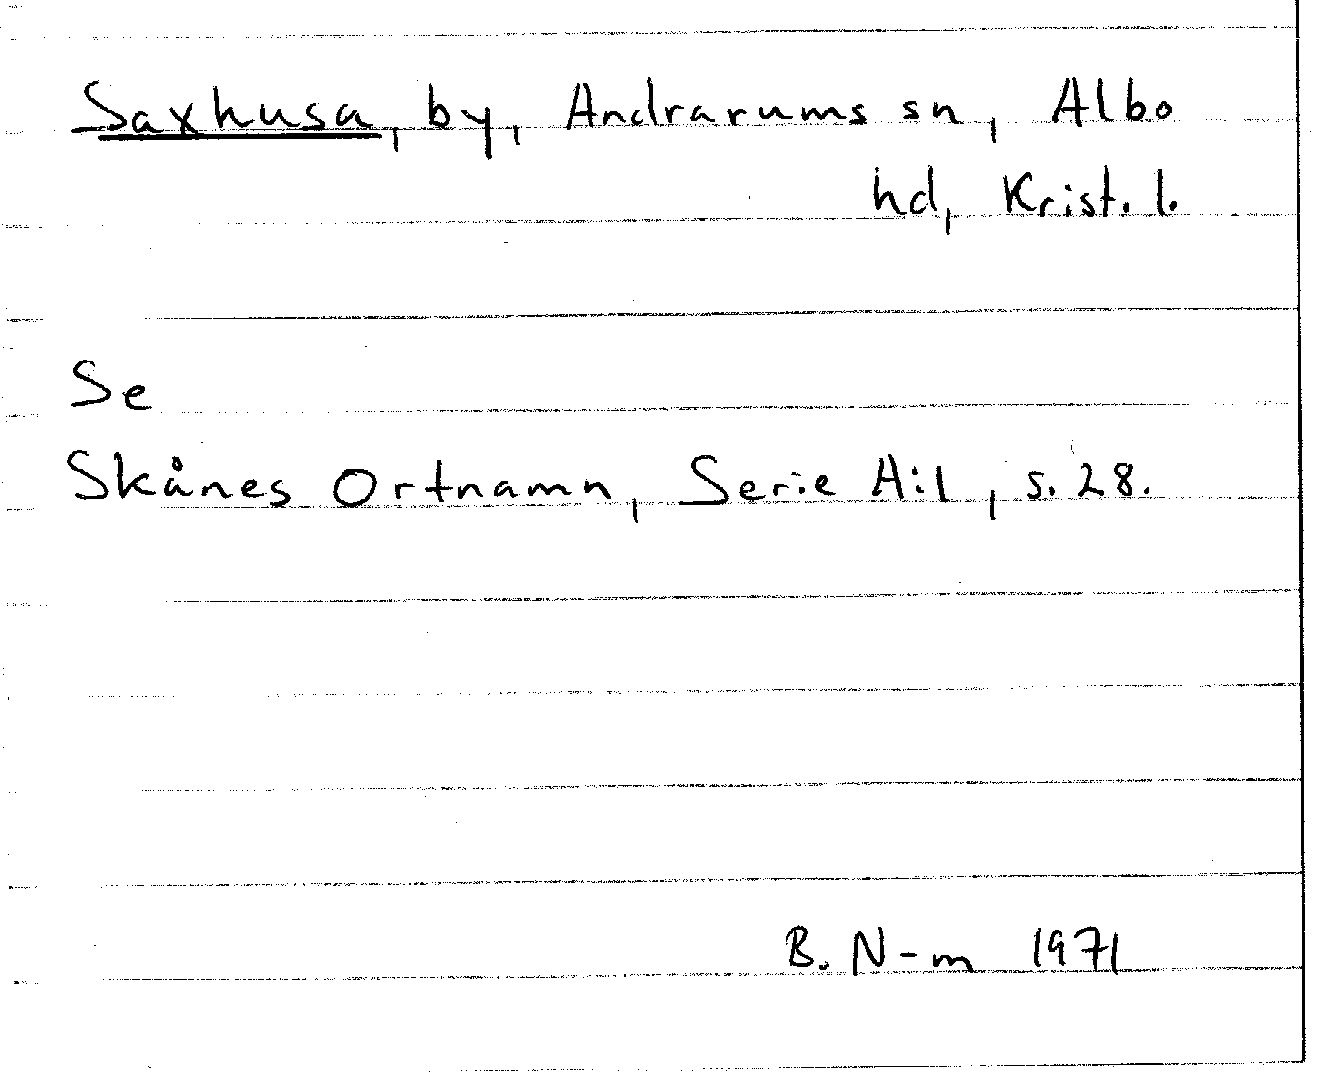 Saxhusa, by, Andrarums sn, Albo
hd, Krist. l.
Se
Skånes Ortnamn, Serie A:1, s. 28.
B. N-m 1971